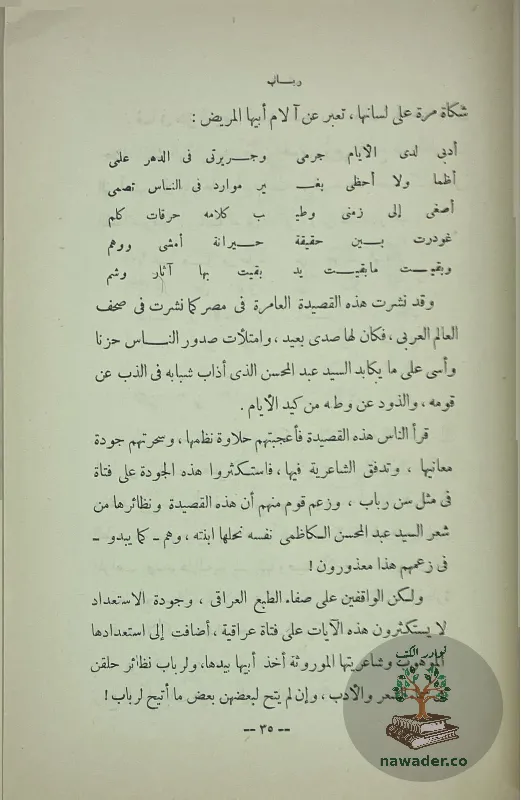 ربـــاب
شكاة مرة على لسانها ، تعبر عن آلام أبيها المريض :
أدبى لدى الأيام جرمى وجـــريرتى فى الدهر علمى
أظما ولا أحظى بغـــ ير موارد فى النـاس تصمى
أصغى إلى زمنى وطيـ ب كلامه حرقات كلم
غودرت بـــين حقيقة حـــيرانة أمشى ووهم
وبقيـــت مابقيـــت يد بقيت بها آثار وشم
وقد نشرت هذه القصيدة العامرة فى مصر كما نشرت فى صحف
العالم العربى ، فكان لها صدى بعيد ، وامتلأت صدور النـــاس حزنا
وأسى على ما يكابد السيد عبد المحسن الذى أذاب شبابه فى الذب عن
قومه ، والذود عن وطنه من كيد الأيام .
قرأ الناس هذه القصيدة فأعجبتهم حلاوة نظمها ، وسحرتهم جودة
معانيها ، وتدفق الشاعرية فيها ، فاستكثروا هذه الجودة على فتاة
فى مثل سن رباب ، وزعم قوم منهم أن هذه القصيدة ونظائرها من
شعر السيد عبد المحسن الكاظمى نفسه نحلها ابنته ، وهم ـ كما يبدو ـ
فى زعمهم هذا معذورون !
ولكن الواقفين على صفاء الطبع العراقى ، وجودة الاستعداد
لا يستكثرون هذه الآيات على فتاة عراقية ، أضافت إلى استعدادها
الموهوب وشاعريتها الموروثة أخذ أبيها بيدها ، ولرباب نظائر حلقن
الشعر والأدب ، وإن لم يتح لبعضهن بعض ما أتيح لرباب !
-- ٣٥ --
نوادر الكتب
nawader.co